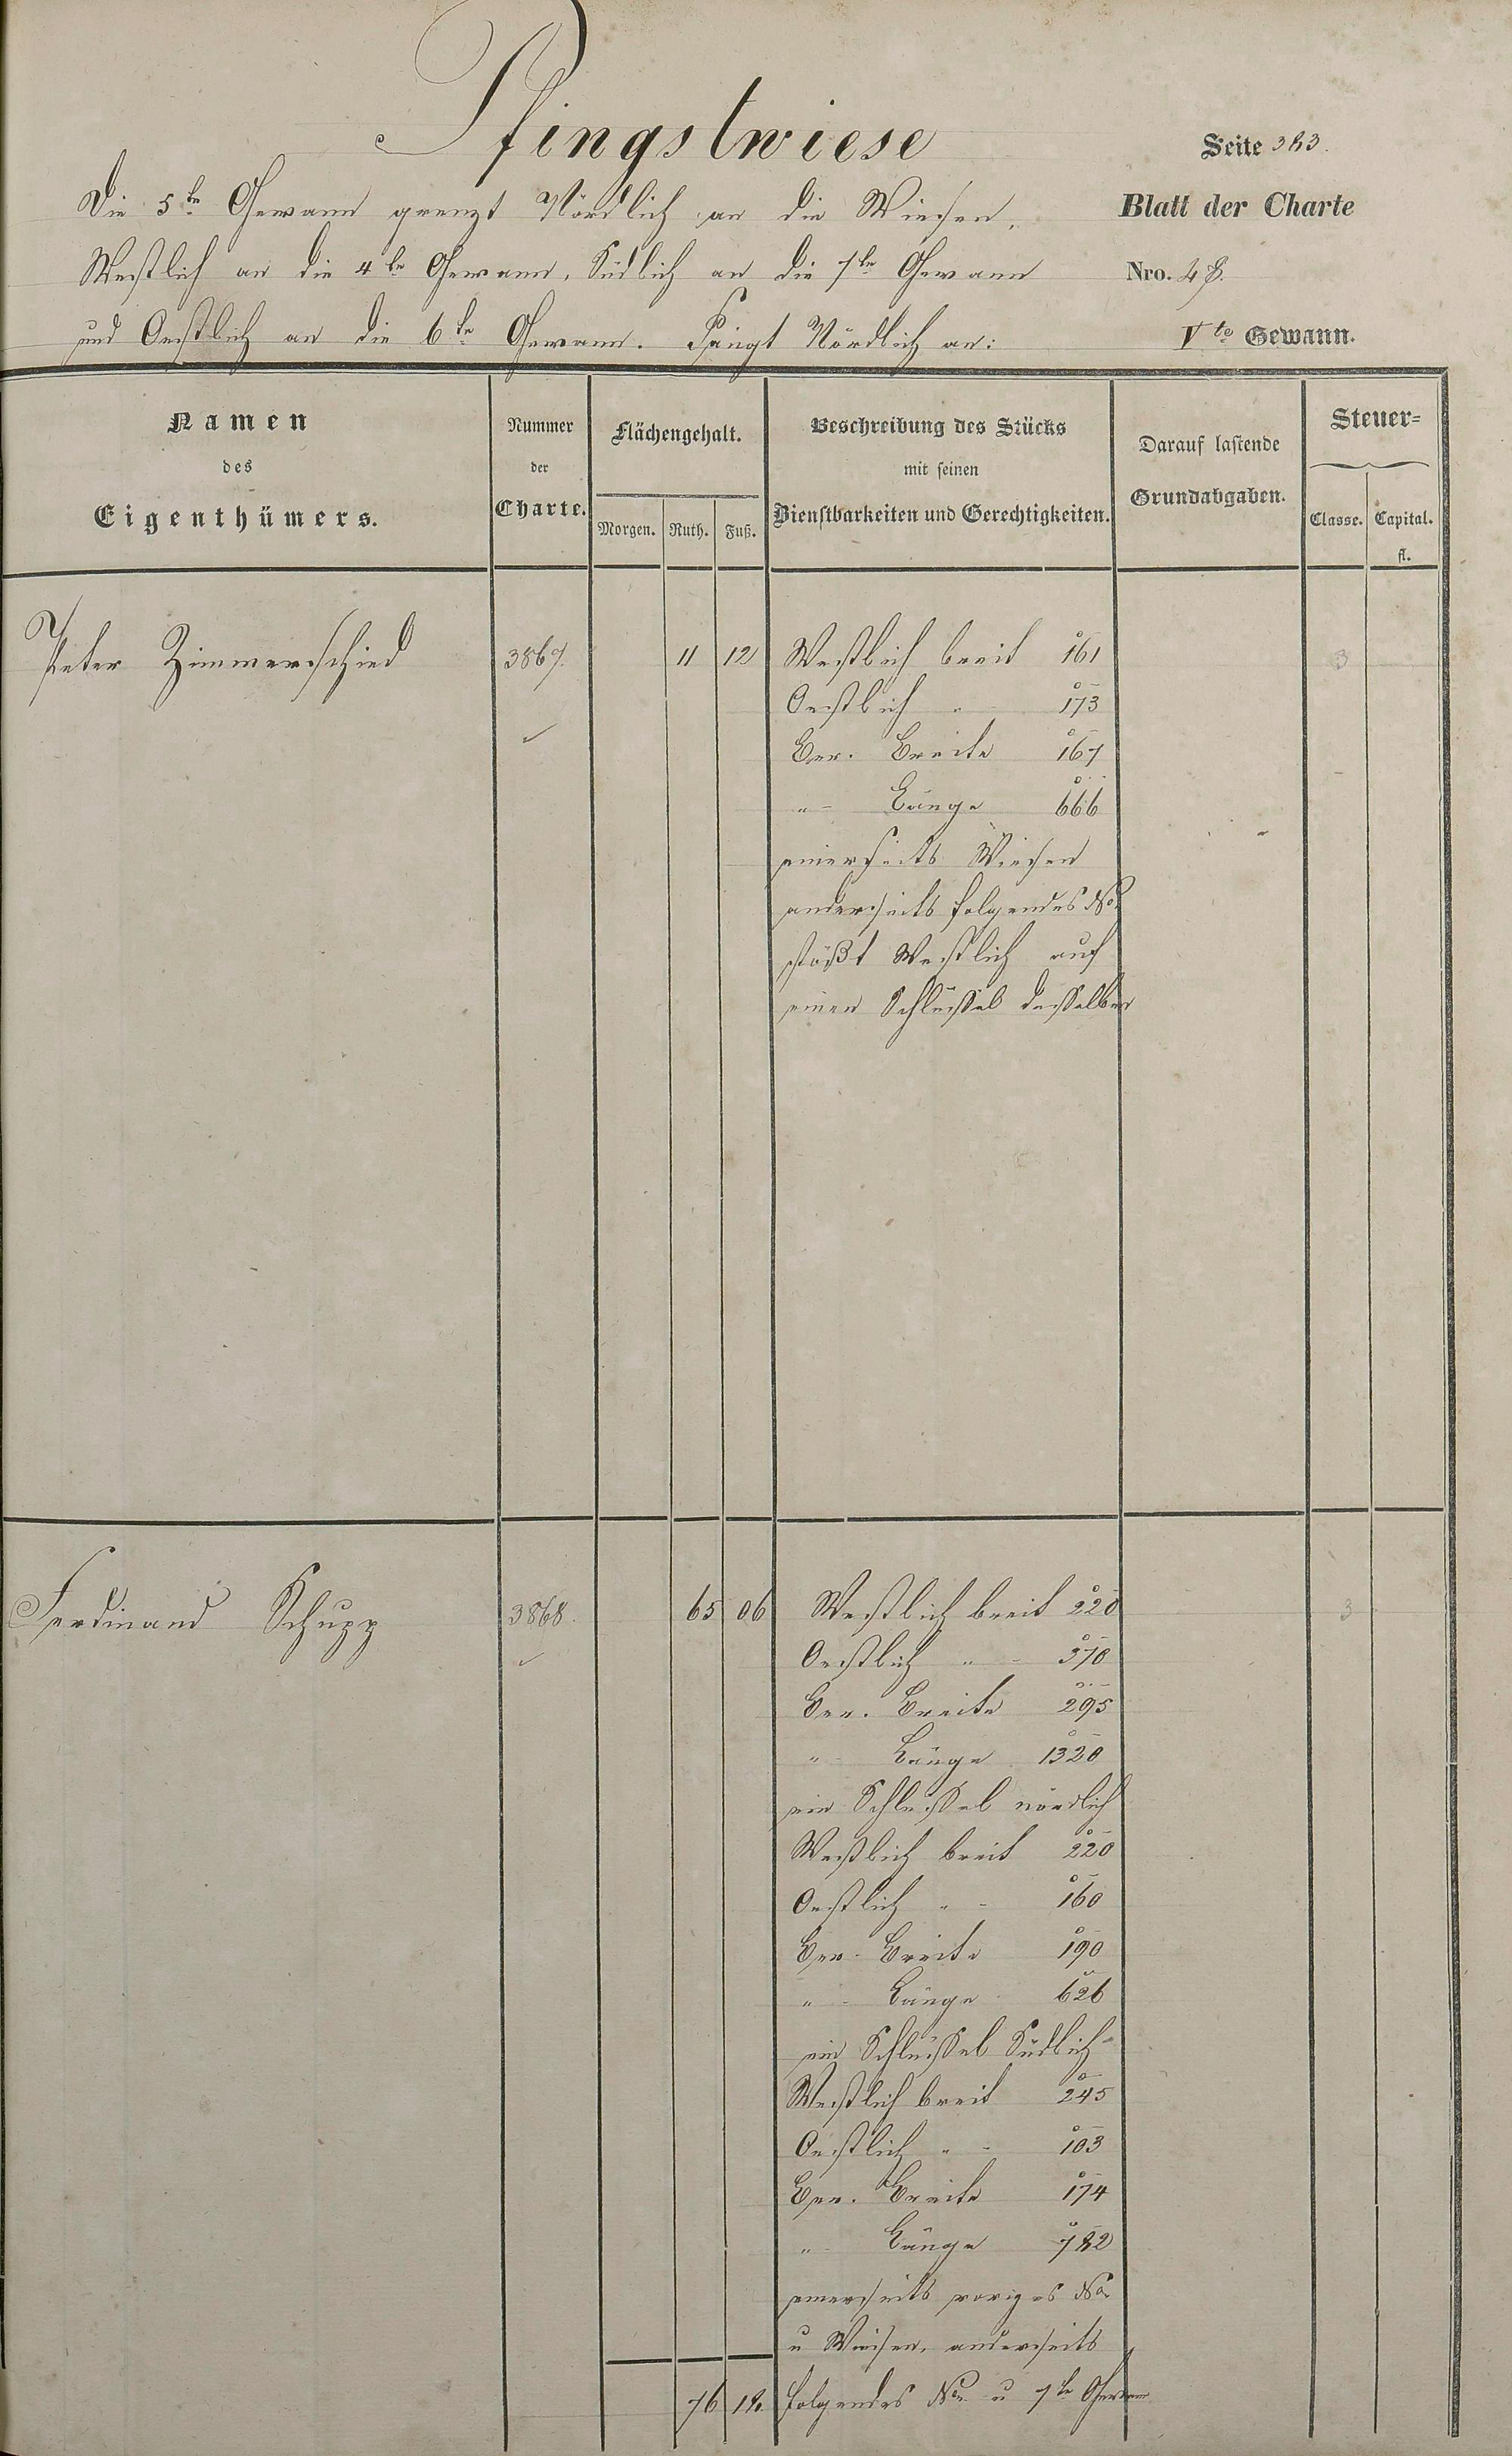 Pfingstwiese
Seite 383.
Die 5te Gewann grenzt Nördlich an die Wiesen,
Blatt der Charte
Westlich an die 4te Gewann, Südlich an die 7te Gewann
Nro. 48.
und Oestlich an die 6te Gewann. Fängt Nördlich an:
Vte Gewann.
Namen
des
Eigenthümers.
Nummer
der
Charte.
Flächengehalt.
Morgen. Ruth. Fuß.
Beschreibung des Stücks
mit seinen
Dienstbarkeiten und Gerechtigkeiten.
Darauf lastende
Grundabgaben.
Steuer=
Classe. Capital.
fl.
Peter Zimmerschied 3867. 11 12 Westlich breit 161 3
Oestlich " 173
Ber. Breite 167
" Länge 666
einerseits Wiesen
anderseits folgendes No.
stößt Westlich auf
einen Schlüssel desselben
Ferdinand Schupp 3868. 65 06 Westlich breit 220 3
Oestlich " 370
Ber. Breite 295
" Länge 1320
ein Schlüssel nördlich
Westlich breit 220
Oestlich " 160
Ber. Breite 190
" Länge 626
ein Schlüssel Südlich
Westlich breit 245
Oestlich " 103
Ber. Breite 174
" Länge 782
einerseits voriges No.
u Wiesen, anderseits
76 18. folgendes No. u 7te Gewann